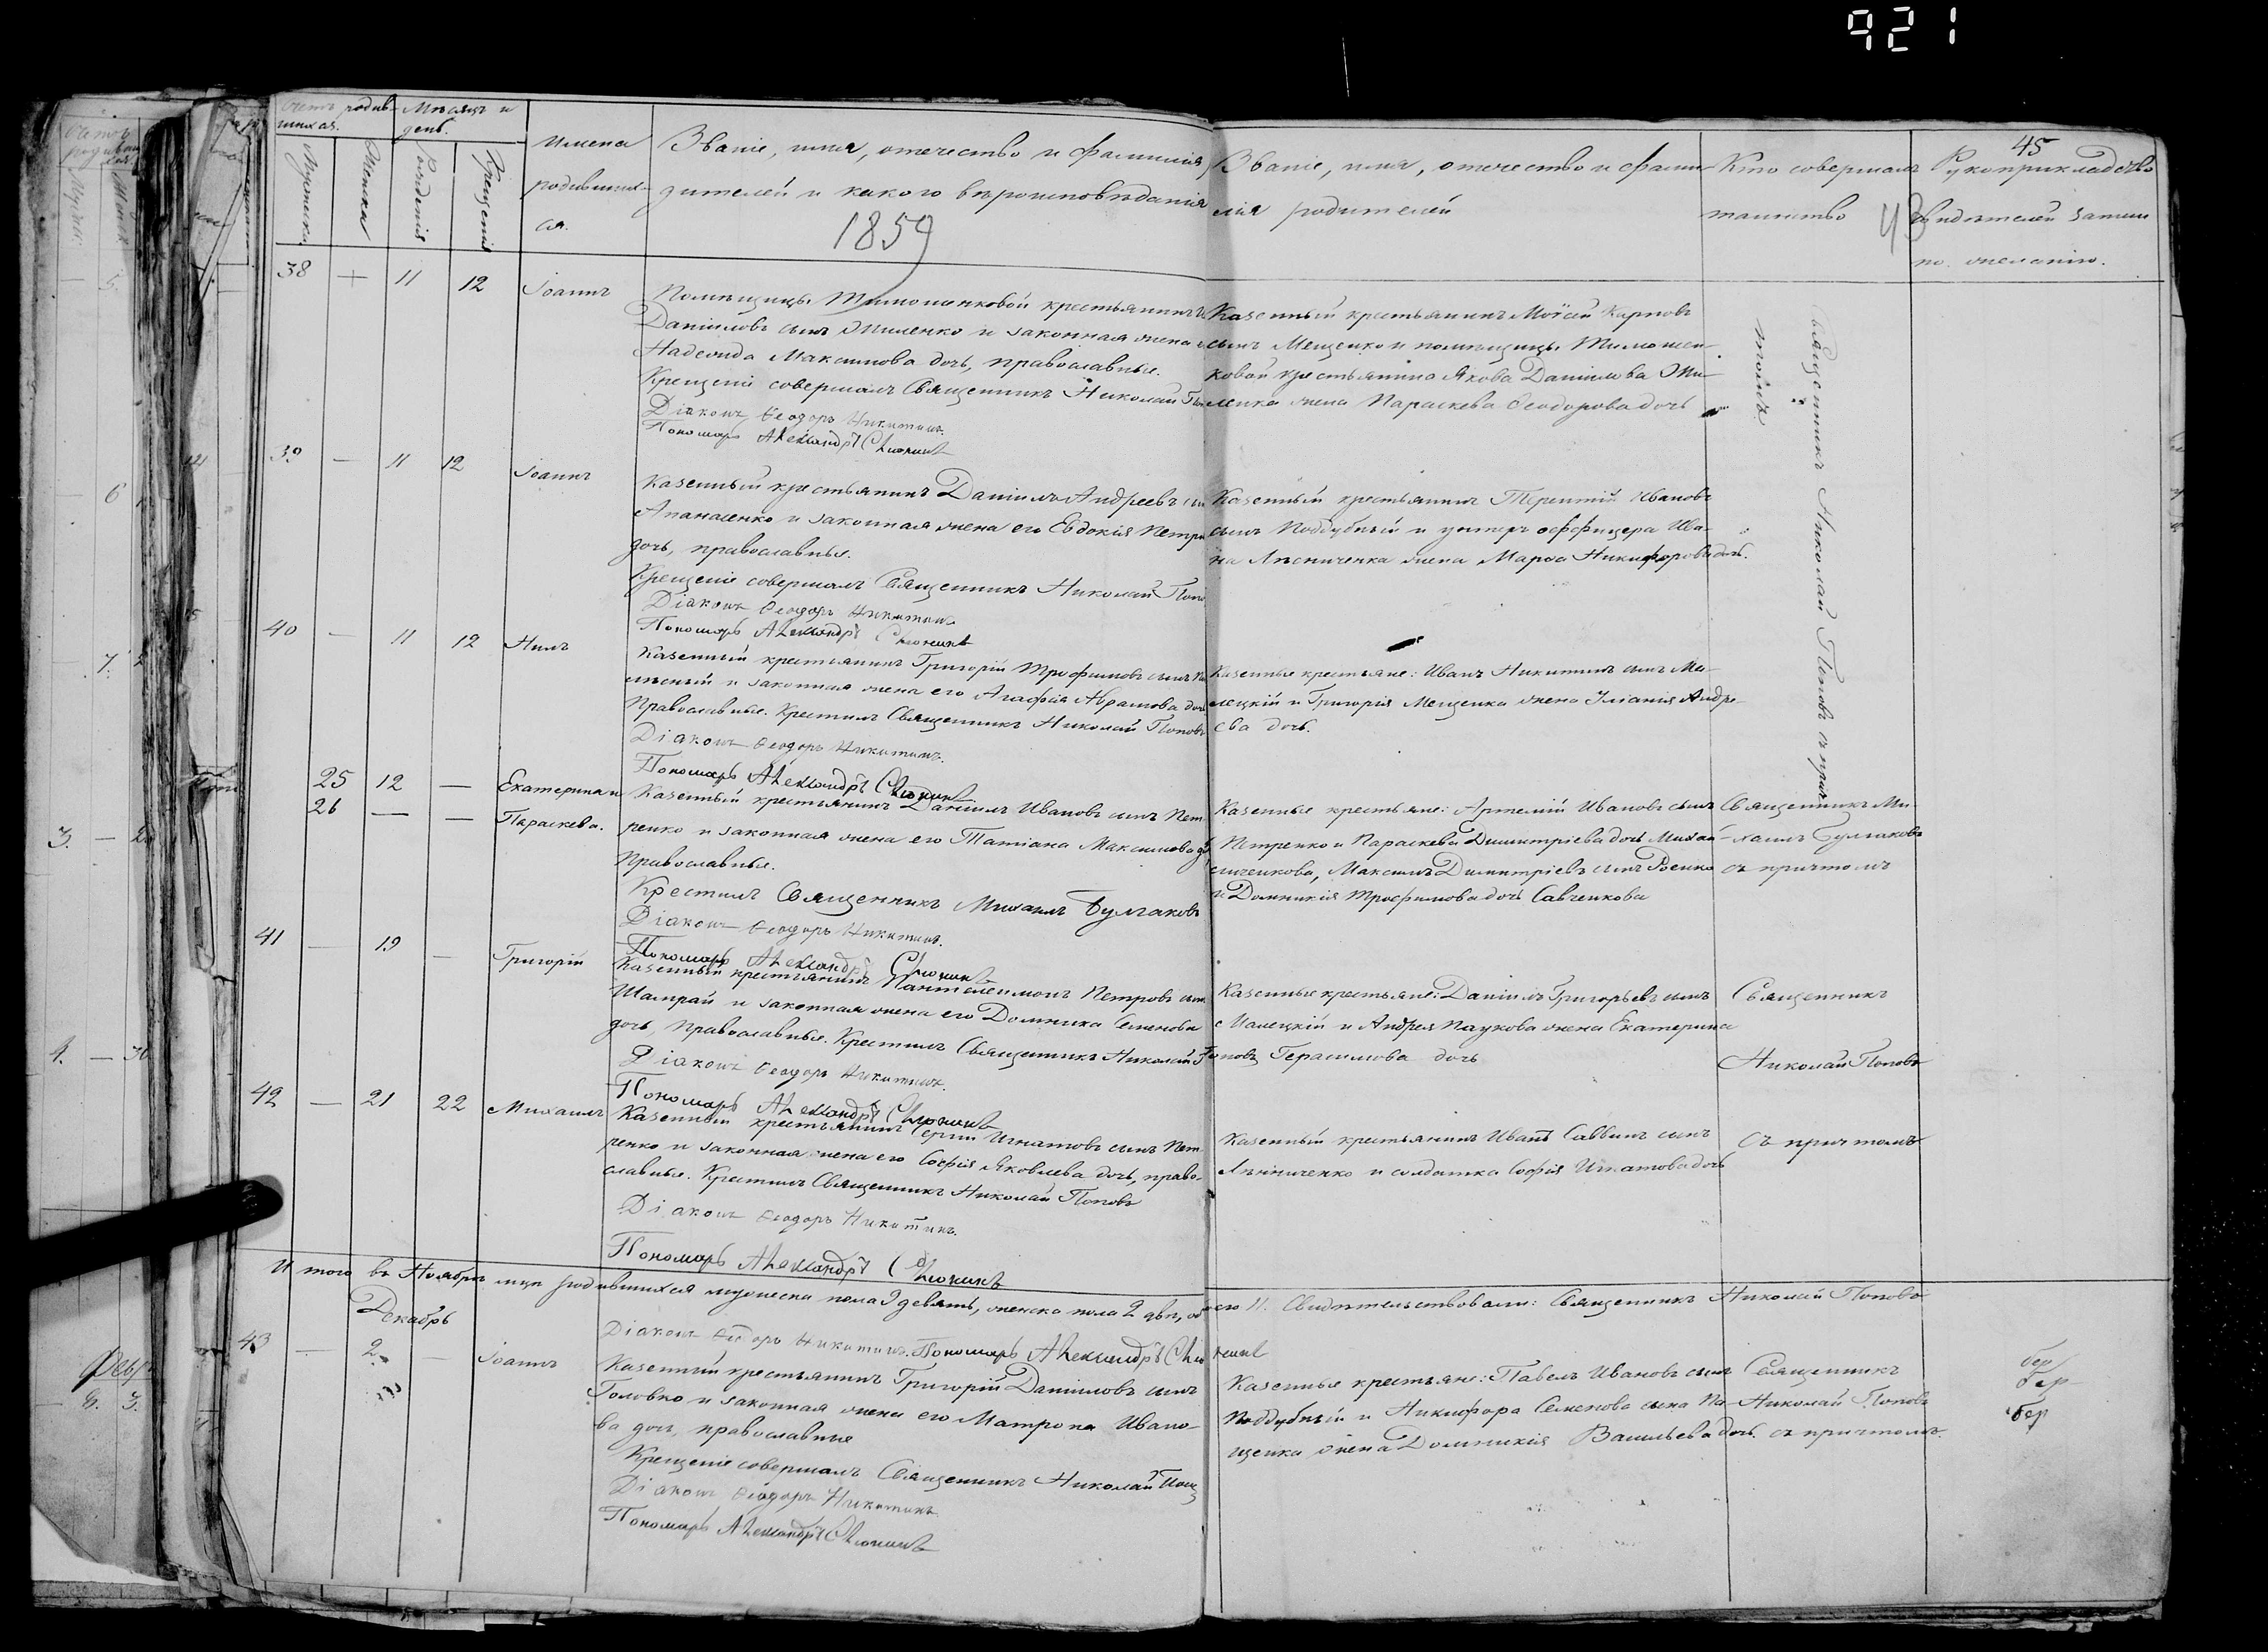 921
45
Счетъ родив-
шихся.
Мѣсяцъ и
день.
Мужеска
Женска
Рожденія
Крещенія
Имена
родивших-
ся.
Званіе, имя, отечество и фамилія
дителей и какого вѣроисповѣданія
1859
Званіе, имя, отечество и фами-
лія родителей
Кто совершалъ
таинство
Рукоприкладство
свидѣтелей записи
по желанію.
38 + 11 12 Іоаннъ
Помѣщицы Тимошенковой крестьянинъ
Даніиловъ сынъ и законная жена
Надежда Максимова дочь, православные.
Крещеніе совершалъ Священникъ Николай
Діаконъ Ѳеодоръ Никитинъ.
Пономарь Александръ
Казенный крестьянинъ Моѵсей Карповъ
сынъ Мещенко и помѣщицы Тимошен-
ковой крестьянина Якова Даніилова
жена Параскева Ѳеодорова дочь
Священникъ Николай Поповъ съ прич-
томъ
39 — 11 12 Іоаннъ
Казенный крестьянинъ Даніилъ Андреевъ
Апанасенко и законная жена его Евдокія Петро
дочь, православные.
Крещеніе совершалъ Священникъ Николай Попо
Діаконъ Ѳеодоръ Никитинъ
Пономарь Александръ
Казенный крестьянинъ Терентій Ивановъ
сынъ Поддубный и унтеръ оффицера Ива-
на Лѣсниченка жена Марѳа Никифорова дочь.
40 — 11 12 Нилъ
Казенный крестьянинъ Григорій Трофимовъ сынъ
и законная жена его Агафія Абрамова дочь
Православные. Крестилъ Священникъ Николай Поповъ
Діаконъ Ѳеодоръ Никитинъ.
Пономарь Александръ
Казенные крестьяне: Иванъ Никитинъ сынъ Ма-
лецкій и Григорія Мещенка жена Уліанія Андре-
ева дочь.
25 12 — Екатерина и
26 — — Параскева.
Казенный крестьянинъ Даніилъ Ивановъ сынъ Пет-
ренко и законная жена его Татіана Максимова
Православные.
Крестилъ Священникъ Михаилъ Булгаковъ
Діаконъ Ѳеодоръ Никитинъ.
Пономарь Александръ
Казенные крестьяне: Артемій Ивановъ сынъ
Петренко и Параскева Димитріева дочь Михай-
личенкова, Максимъ Димитріевъ сынъ
и Домникія Трофимова дочь Савченкова
Священникъ Ми-
хаилъ Булгаковъ
съ причтомъ
41 — 19 — Григорій
Казенный крестьянинъ Пантелеимонъ Петровъ сынъ
Шамрай и законная жена его Домника Семенова
дочь, Православные. Крестилъ Священникъ Николай Поповъ
Діаконъ Ѳеодоръ Никитинъ.
Пономарь Александръ
Казенные крестьяне: Даніилъ Григорьевъ сынъ
Малецкій и Андрея Паукова жена Екатерина
Герасимова дочь
Священникъ
Николай Поповъ
42 — 21 22 Михаилъ
Казенный крестьянинъ Сергій Игнатовъ сынъ Пет-
ренко и законная жена его Софія Яковлева дочь, право-
славные. Крестилъ Священникъ Николай Поповъ
Діаконъ Ѳеодоръ Никитинъ.
Пономарь Александръ
Казенный крестьянинъ Иванъ Саввинъ сынъ
и солдатка Софія Игнатова дочь
съ причтомъ
Итого въ Ноябрѣ мцѣ родившихся мужеска пола 9 девять, женска пола 2 двѣ, обоего 11. Свидѣтельствовали: Священникъ Николай Поповъ
Діаконъ Ѳеодоръ Никитинъ. Пономарь Александръ
Декабрь
43 — 2 — Іоаннъ
Казенный крестьянинъ Григорій Даніиловъ сынъ
Головко и законная жена его Матрона Ивано-
ва дочь, православные
Крещеніе совершалъ Священникъ Николай
Діаконъ Ѳеодоръ Никитинъ
Пономарь Александръ
Казенные крестьяне: Павелъ Ивановъ сынъ
Поддубный и Никифора Семенова сына Па-
щенка жена Домникія Васильева дочь.
Священникъ
Николай Поповъ
съ причтомъ.